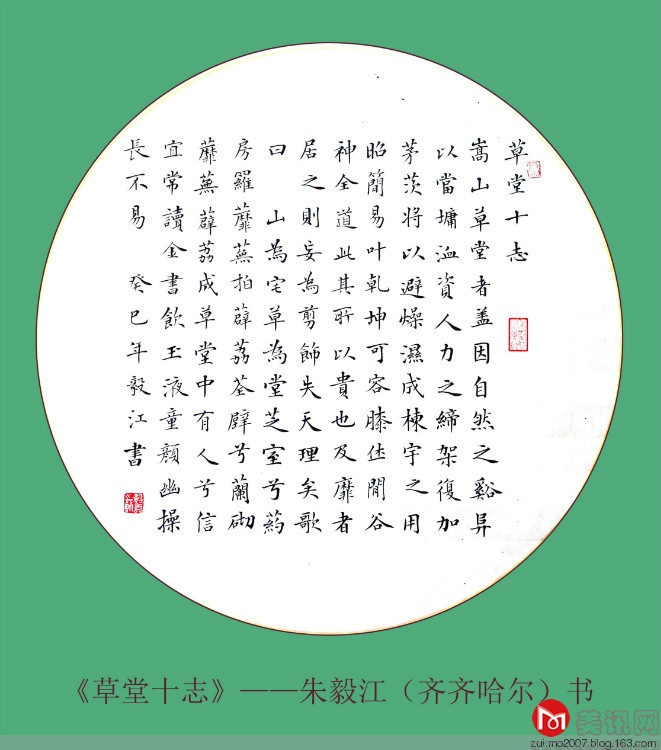 草堂十志
嵩山草堂者盖因自然之谿异
以當墉洫資人力之締架復加
茅茨将以避燥濕成棟宇之用
昭簡易叶乾坤可容膝休閒谷
神全道此其所以貴也及靡者
居之則妄為剪飾失天理矣歌
曰 山為宅草為堂芝室兮葯
房羅蘼蕪拍薜荔荃壁兮蘭砌
蘼蕪薜荔成草堂中有人兮信
宜常讀金書飲玉液童顏幽操
長不易 癸巳年毅江書
《草堂十志》——朱毅江（齐齐哈尔）书
美讯网
zui.mo2007.blog.163.com